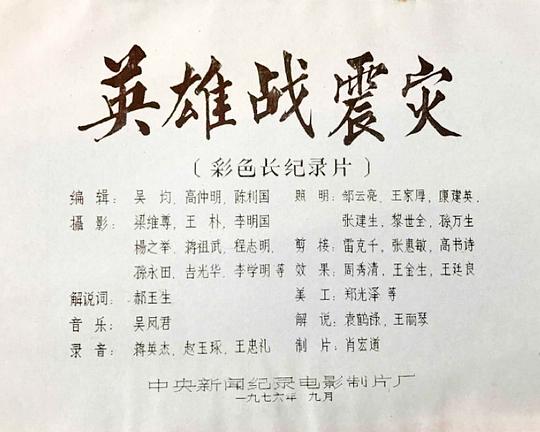 英雄战震灾
〔彩色长纪录片〕
编辑：吴均、高仲明、陈利国
摄影：梁维尊、王朴、李明国
杨之举、蒋祖武、程志明、
孙永田、吉光华、李学明等
解说词：郝玉生
音乐：吴凤君
录音：蒋英杰、赵玉琢、王忠礼
照明：邹云亮、王家厚、康建英、
张建生、黎世全、孙万生
剪接：雷克千、张惠敏、高书诗
效果：周秀清、王金生、王廷良
美工：郑光泽等
解说：袁鹤咏、王丽琴
制片：肖宏道
中央新闻纪录电影制片厂
一九七六年 九月